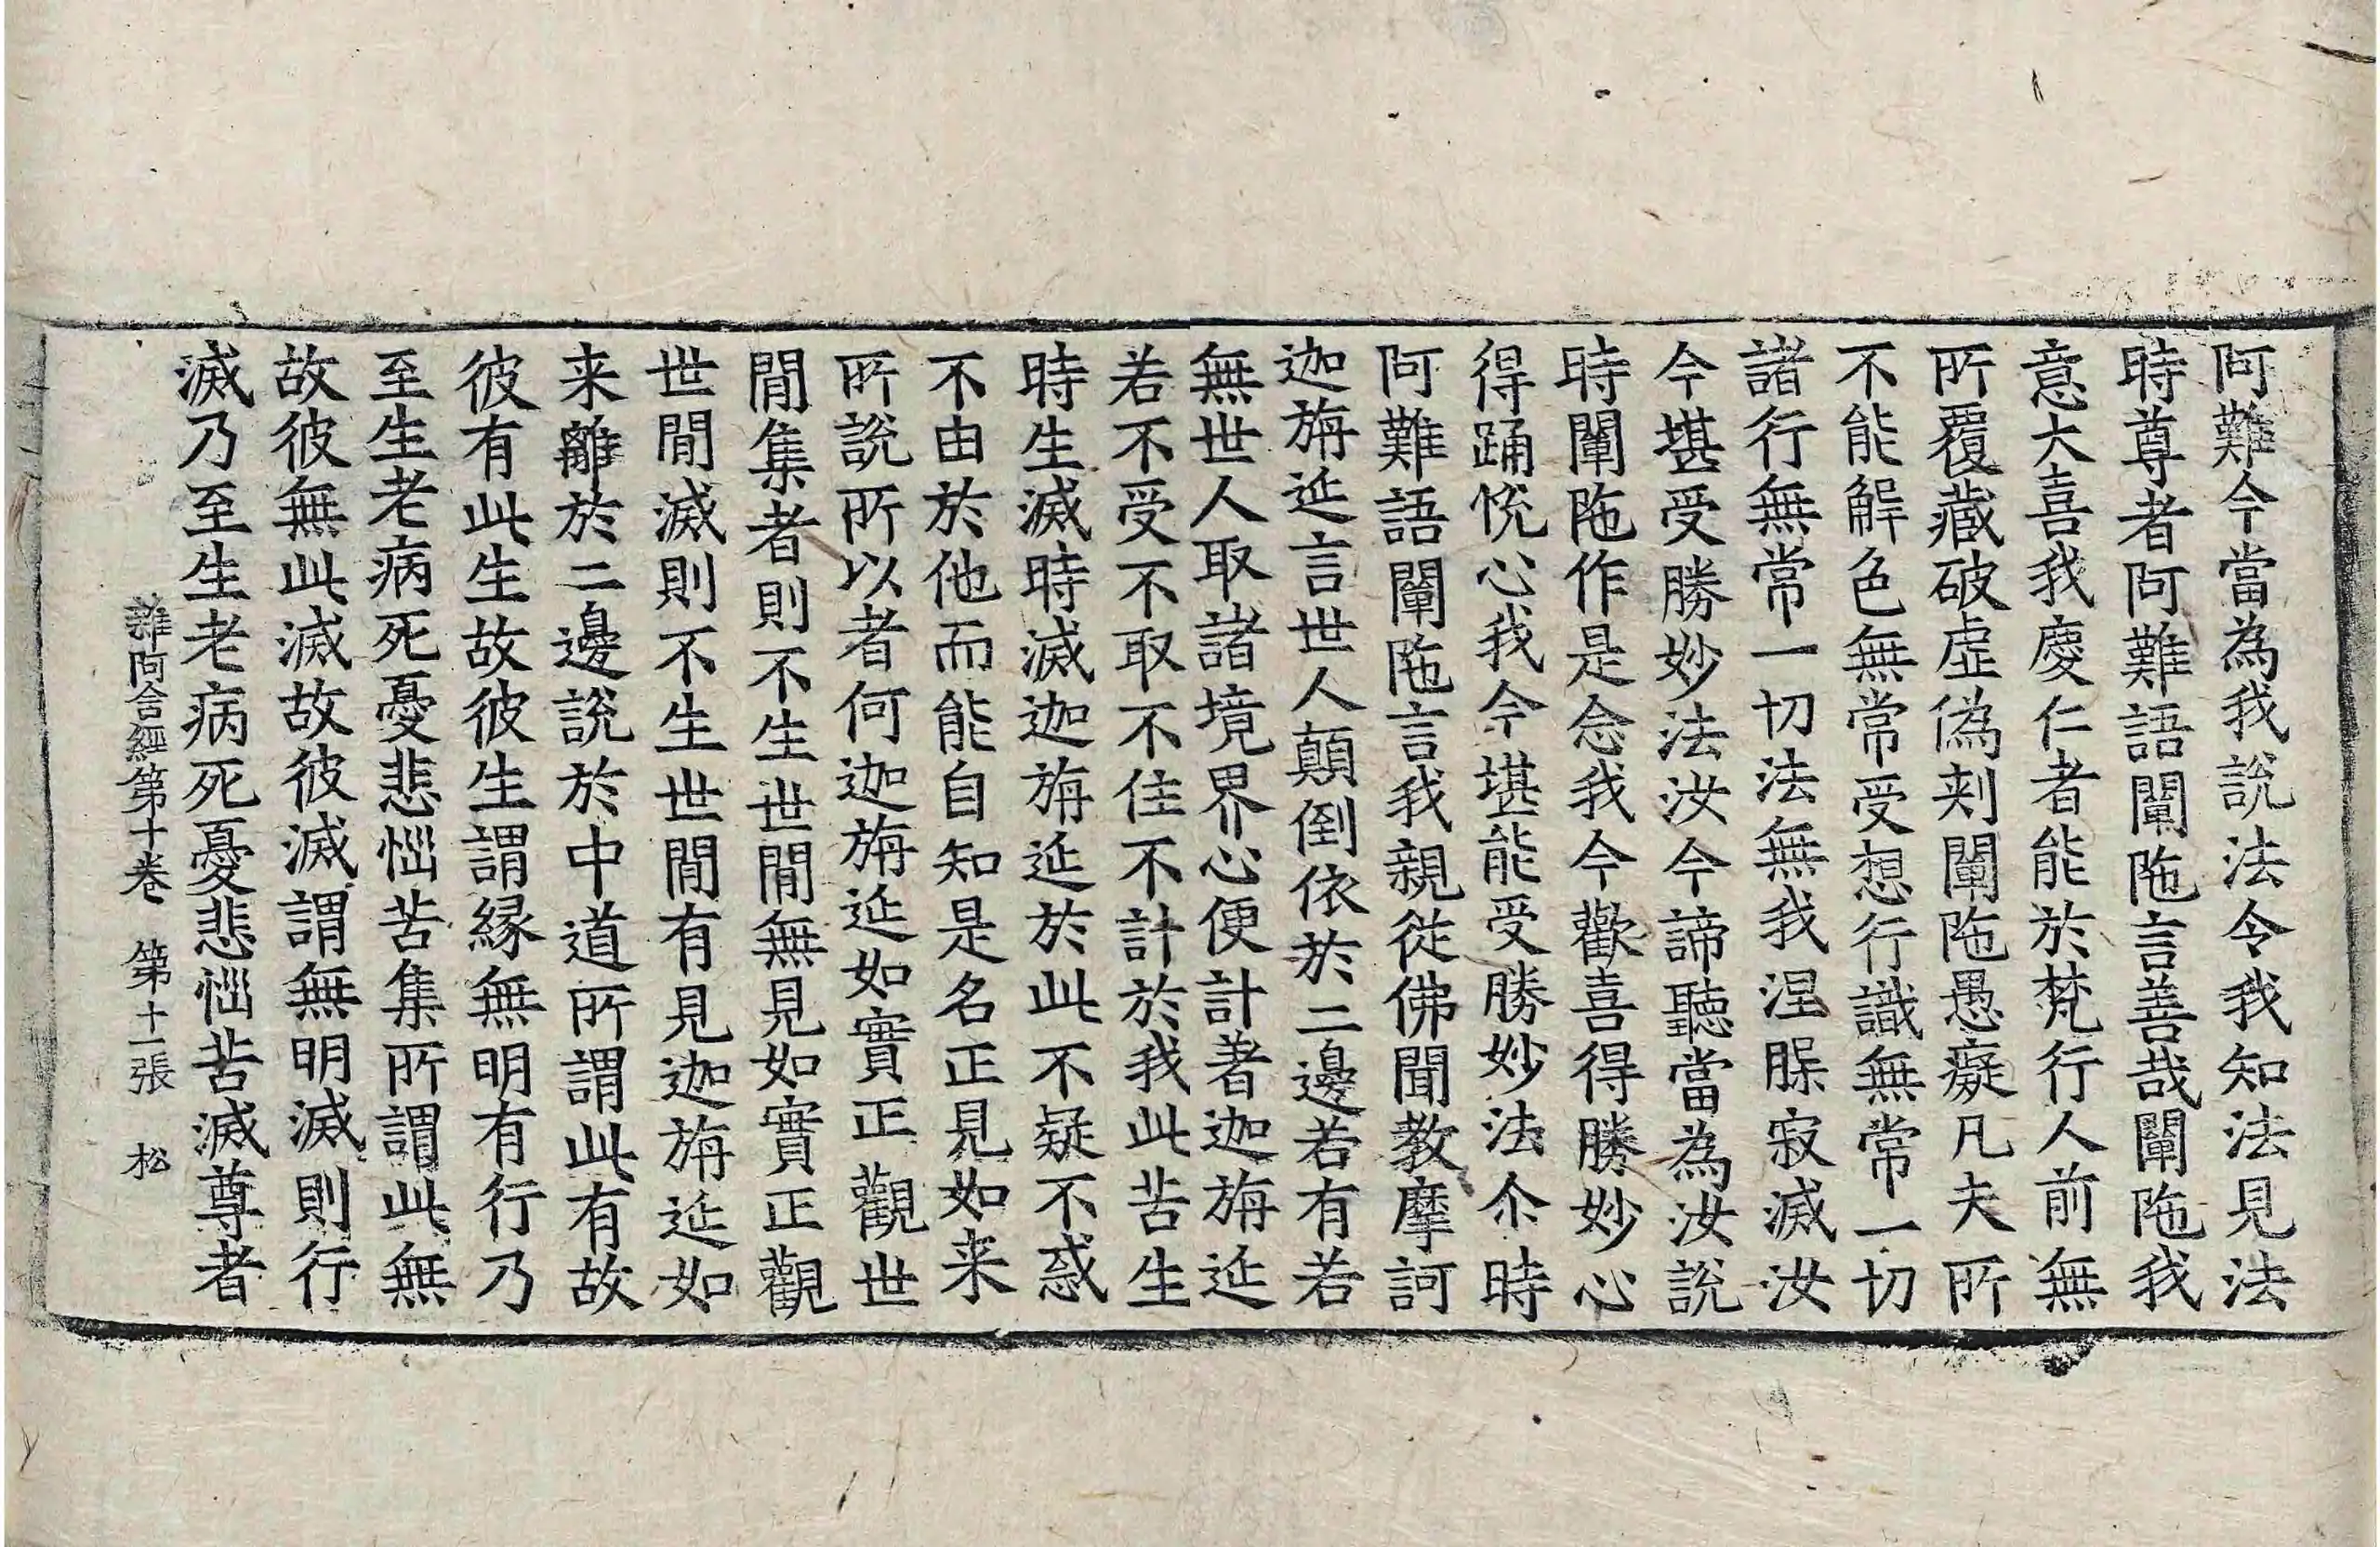 阿難今當為我說法令我知法見法
時尊者阿難語闡陁言善哉闡陁我
意大喜我慶仁者能於梵行人前無
所覆藏破虛偽刾闡陁愚癡凡夫所
不能解色無常受想行識無常一切
諸行無常一切法無我涅槃寂滅汝
今堪受勝妙法汝今諦聽當為汝說
時闡陁作是念我今歡喜得勝妙心
得踊恱心我今堪能受勝妙法尒時
阿難語闡陁言我親從佛聞教摩訶
迦旃延言世人顛倒依於二邊若有若
無世人取諸境界心便計著迦旃延
若不受不取不住不計於我此苦生
時生滅時滅迦旃延於此不疑不惑
不由於他而能自知是名正見如来
所說所以者何迦旃延如實正觀世
閒集者則不生世閒無見如實正觀
世閒滅則不生世閒有見迦旃延如
来離於二邊說於中道所謂此有故
彼有此生故彼生謂緣無明有行乃
至生老病死憂悲惱苦集所謂此無
故彼無此滅故彼滅謂無明滅則行
滅乃至生老病死憂悲惱苦滅尊者
雜阿含經第十卷 第十一張 松